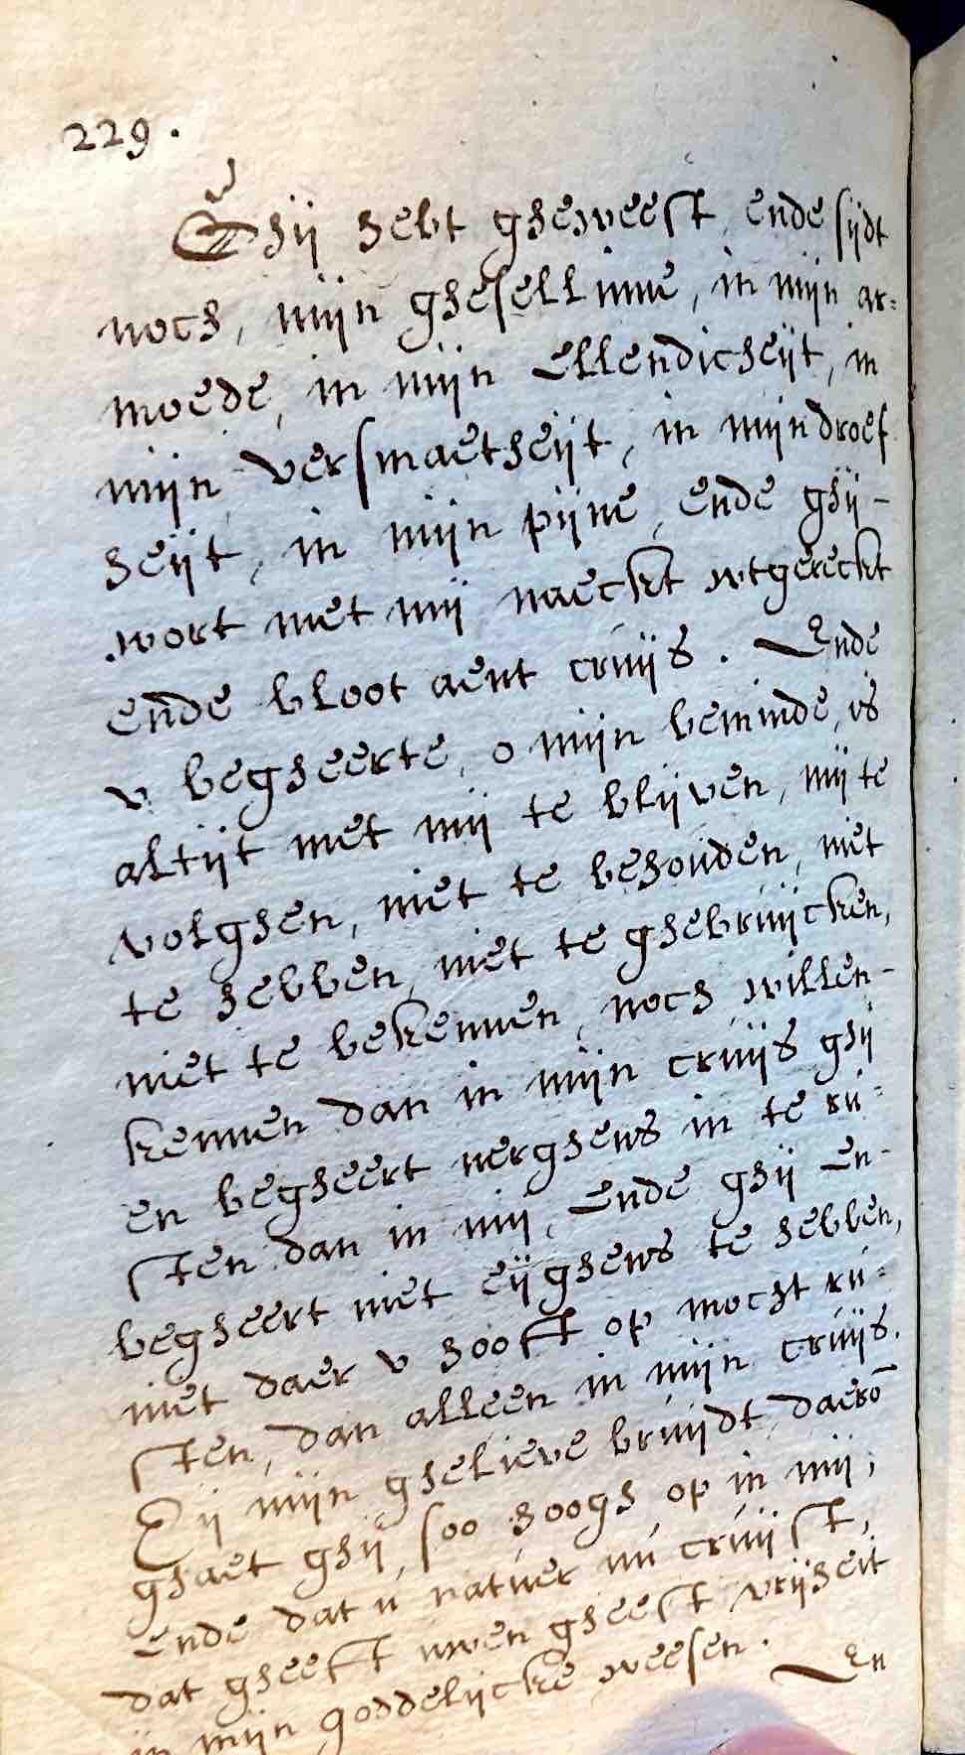 229.
Ghij hebt gheweest, ende sijdt
noch, mijn ghesellinne, in mijn ar:
moede, in mijn ellendicheijt, in
mijn versmaetheijt, in mijn droef
heijt, in mijn pijne, ende ghij-
wort met mij naeckt wtgereckt
ende bloot aent cruijs. Ende
v begheerte, o mijn beminde, is
altijt met mij te blijven, mij te
volghen, niet te behouden, niet
te hebben, niet te ghebruijcken,
niet te bekennen, noch willen-
kennen dan in mijn cruijs ghij
en begheert nerghens in te ru:
sten dan in mij, Ende ghij en-
begheert niet eijghens te hebben,
niet daer v hooft op mocht ru:
sten, dan alleen in mijn cruijs.
Eij mijn ghelieve bruijdt, daerō
ghaet ghij, soo hoogh op in mij;
ende dat u natuer nu cruijst,
dat gheeft uwen gheest vrijheit
in mijn goddelijcke weesen. En